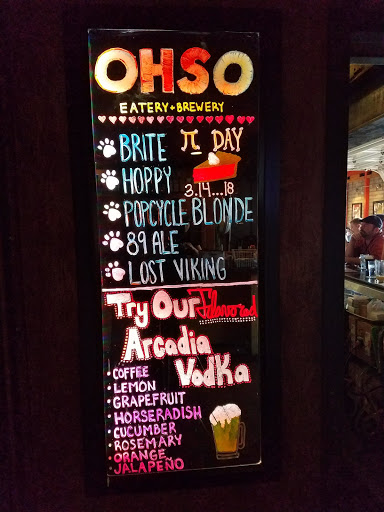 OHSO
EATERY + BREWERY
BRITE
π DAY
HOPPY
3.14...18
POPCYCLE BLONDE
89 ALE
LOST VIKING
Try Our Flavored
Arcadia
Vodka
COFFEE
LEMON
GRAPEFRUIT
HORSERADISH
CUCUMBER
ROSEMARY
ORANGE
JALAPEÑO